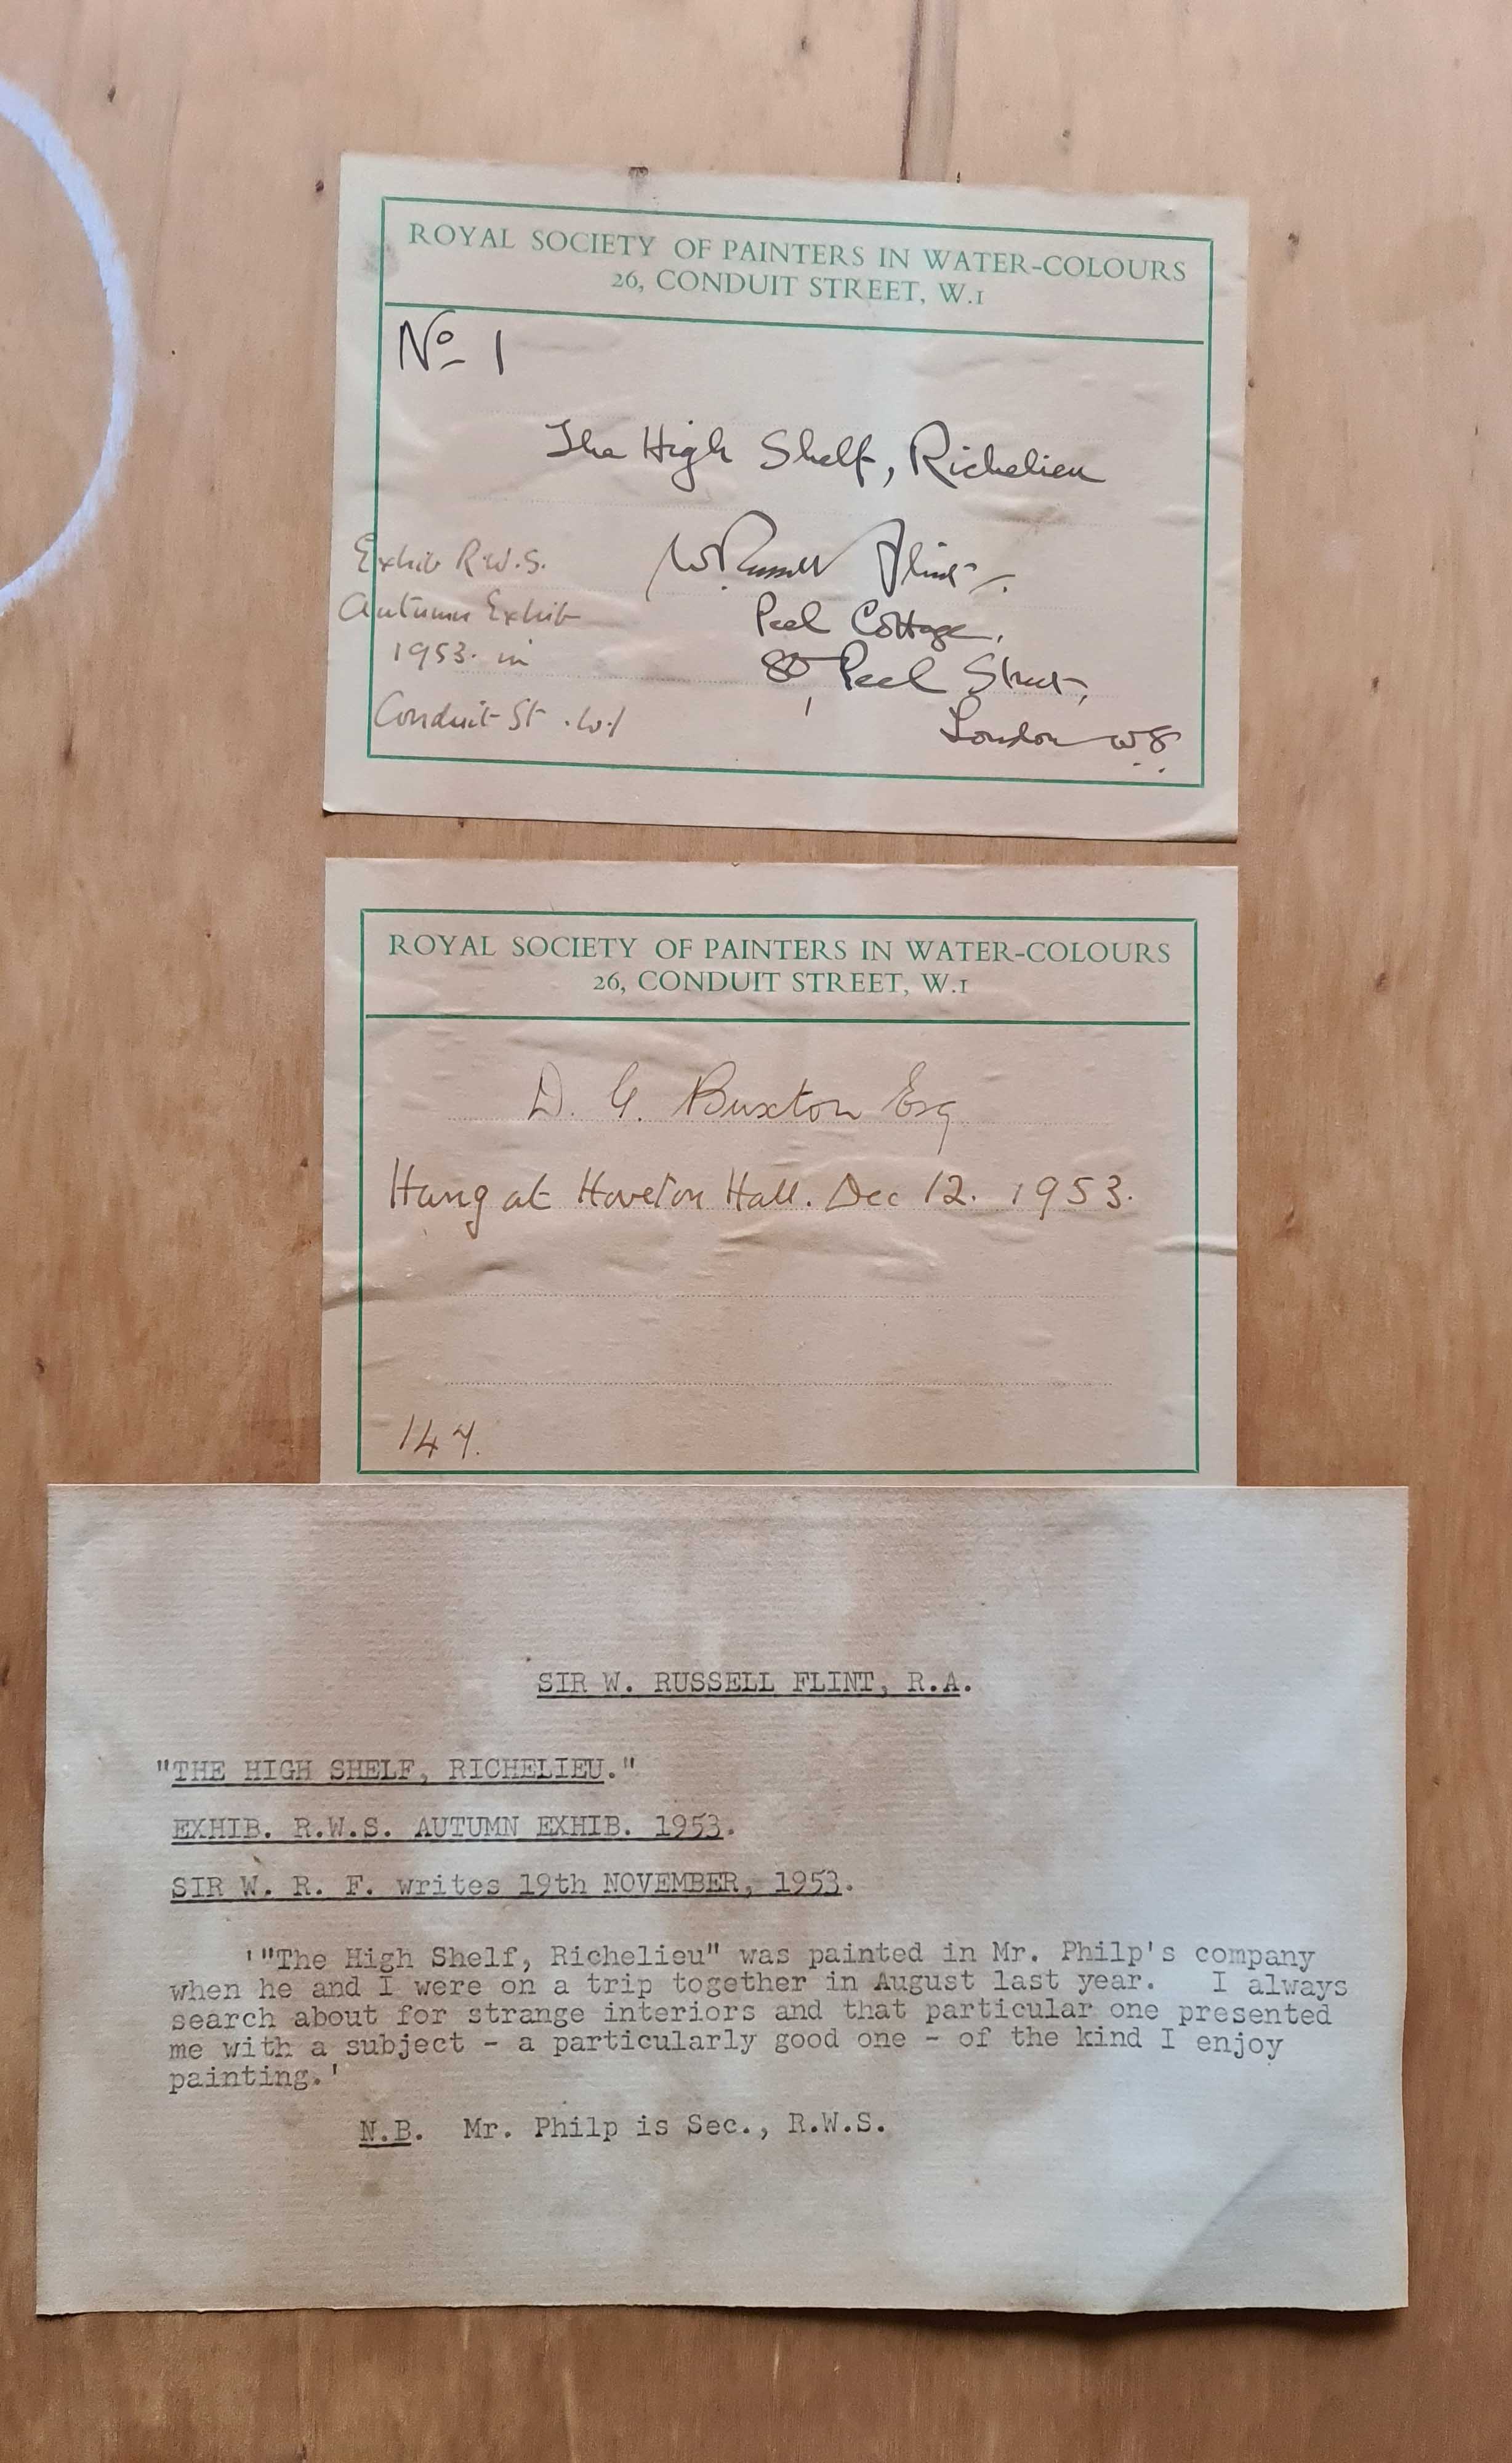 ROYAL SOCIETY OF PAINTERS IN WATER-COLOURS
26, CONDUIT STREET, W.1
No 1
The High Shelf, Richelieu
W Russell Flint
Peel Cottage,
80, Peel Street,
London W8
Exhib R.W.S.
Autumn Exhib
1953. in
Conduit St. W.1
ROYAL SOCIETY OF PAINTERS IN WATER-COLOURS
26, CONDUIT STREET, W.1
D. G. Buxton Esq
Hung at Hoveton Hall. Dec 12. 1953.
147.
SIR W. RUSSELL FLINT, R.A.
"THE HIGH SHELF, RICHELIEU."
EXHIB. R.W.S. AUTUMN EXHIB. 1953.
SIR W. R. F. writes 19th NOVEMBER, 1953.
'"The High Shelf, Richelieu" was painted in Mr. Philp's company
when he and I were on a trip together in August last year. I always
search about for strange interiors and that particular one presented
me with a subject - a particularly good one - of the kind I enjoy
painting.'
N.B. Mr. Philp is Sec., R.W.S.